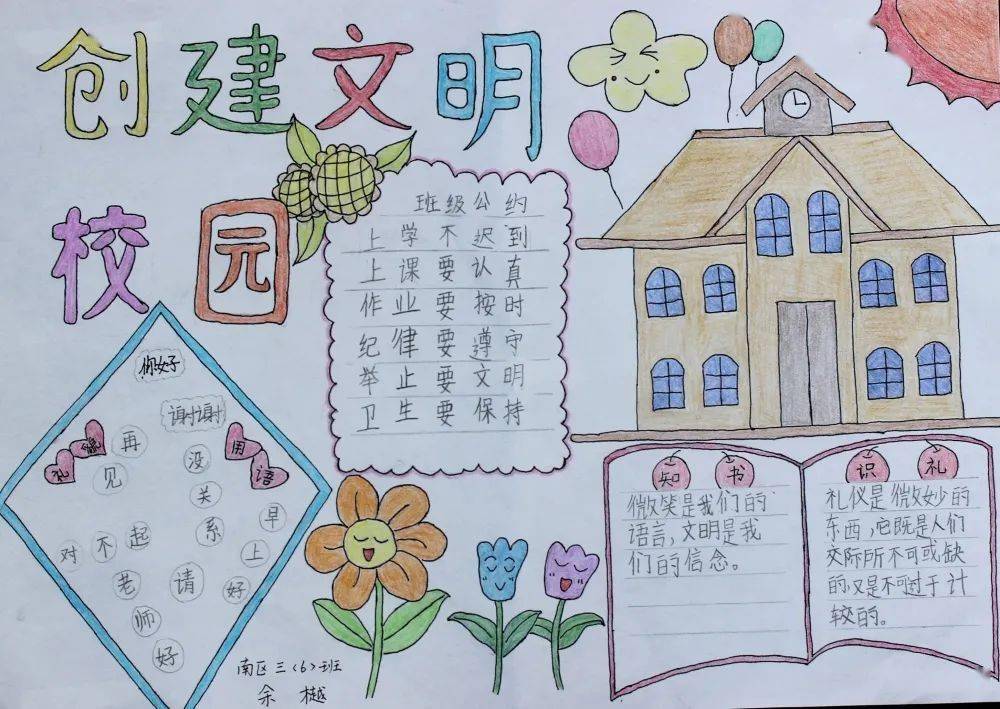 创建文明
校园
班级公约
上学不迟到
上课要认真
作业要按时
纪律要遵守
举止要文明
卫生要保持
你好
谢谢
礼貌
用语
再见
没关系
早上好
对不起
请
老师好
南区三(6)班
余樾
知书
微笑是我们的
语言,文明是我
们的信念。
识礼
礼仪是微妙的
东西,它既是人们
交际所不可或缺
的,又是不可过于计
较的。